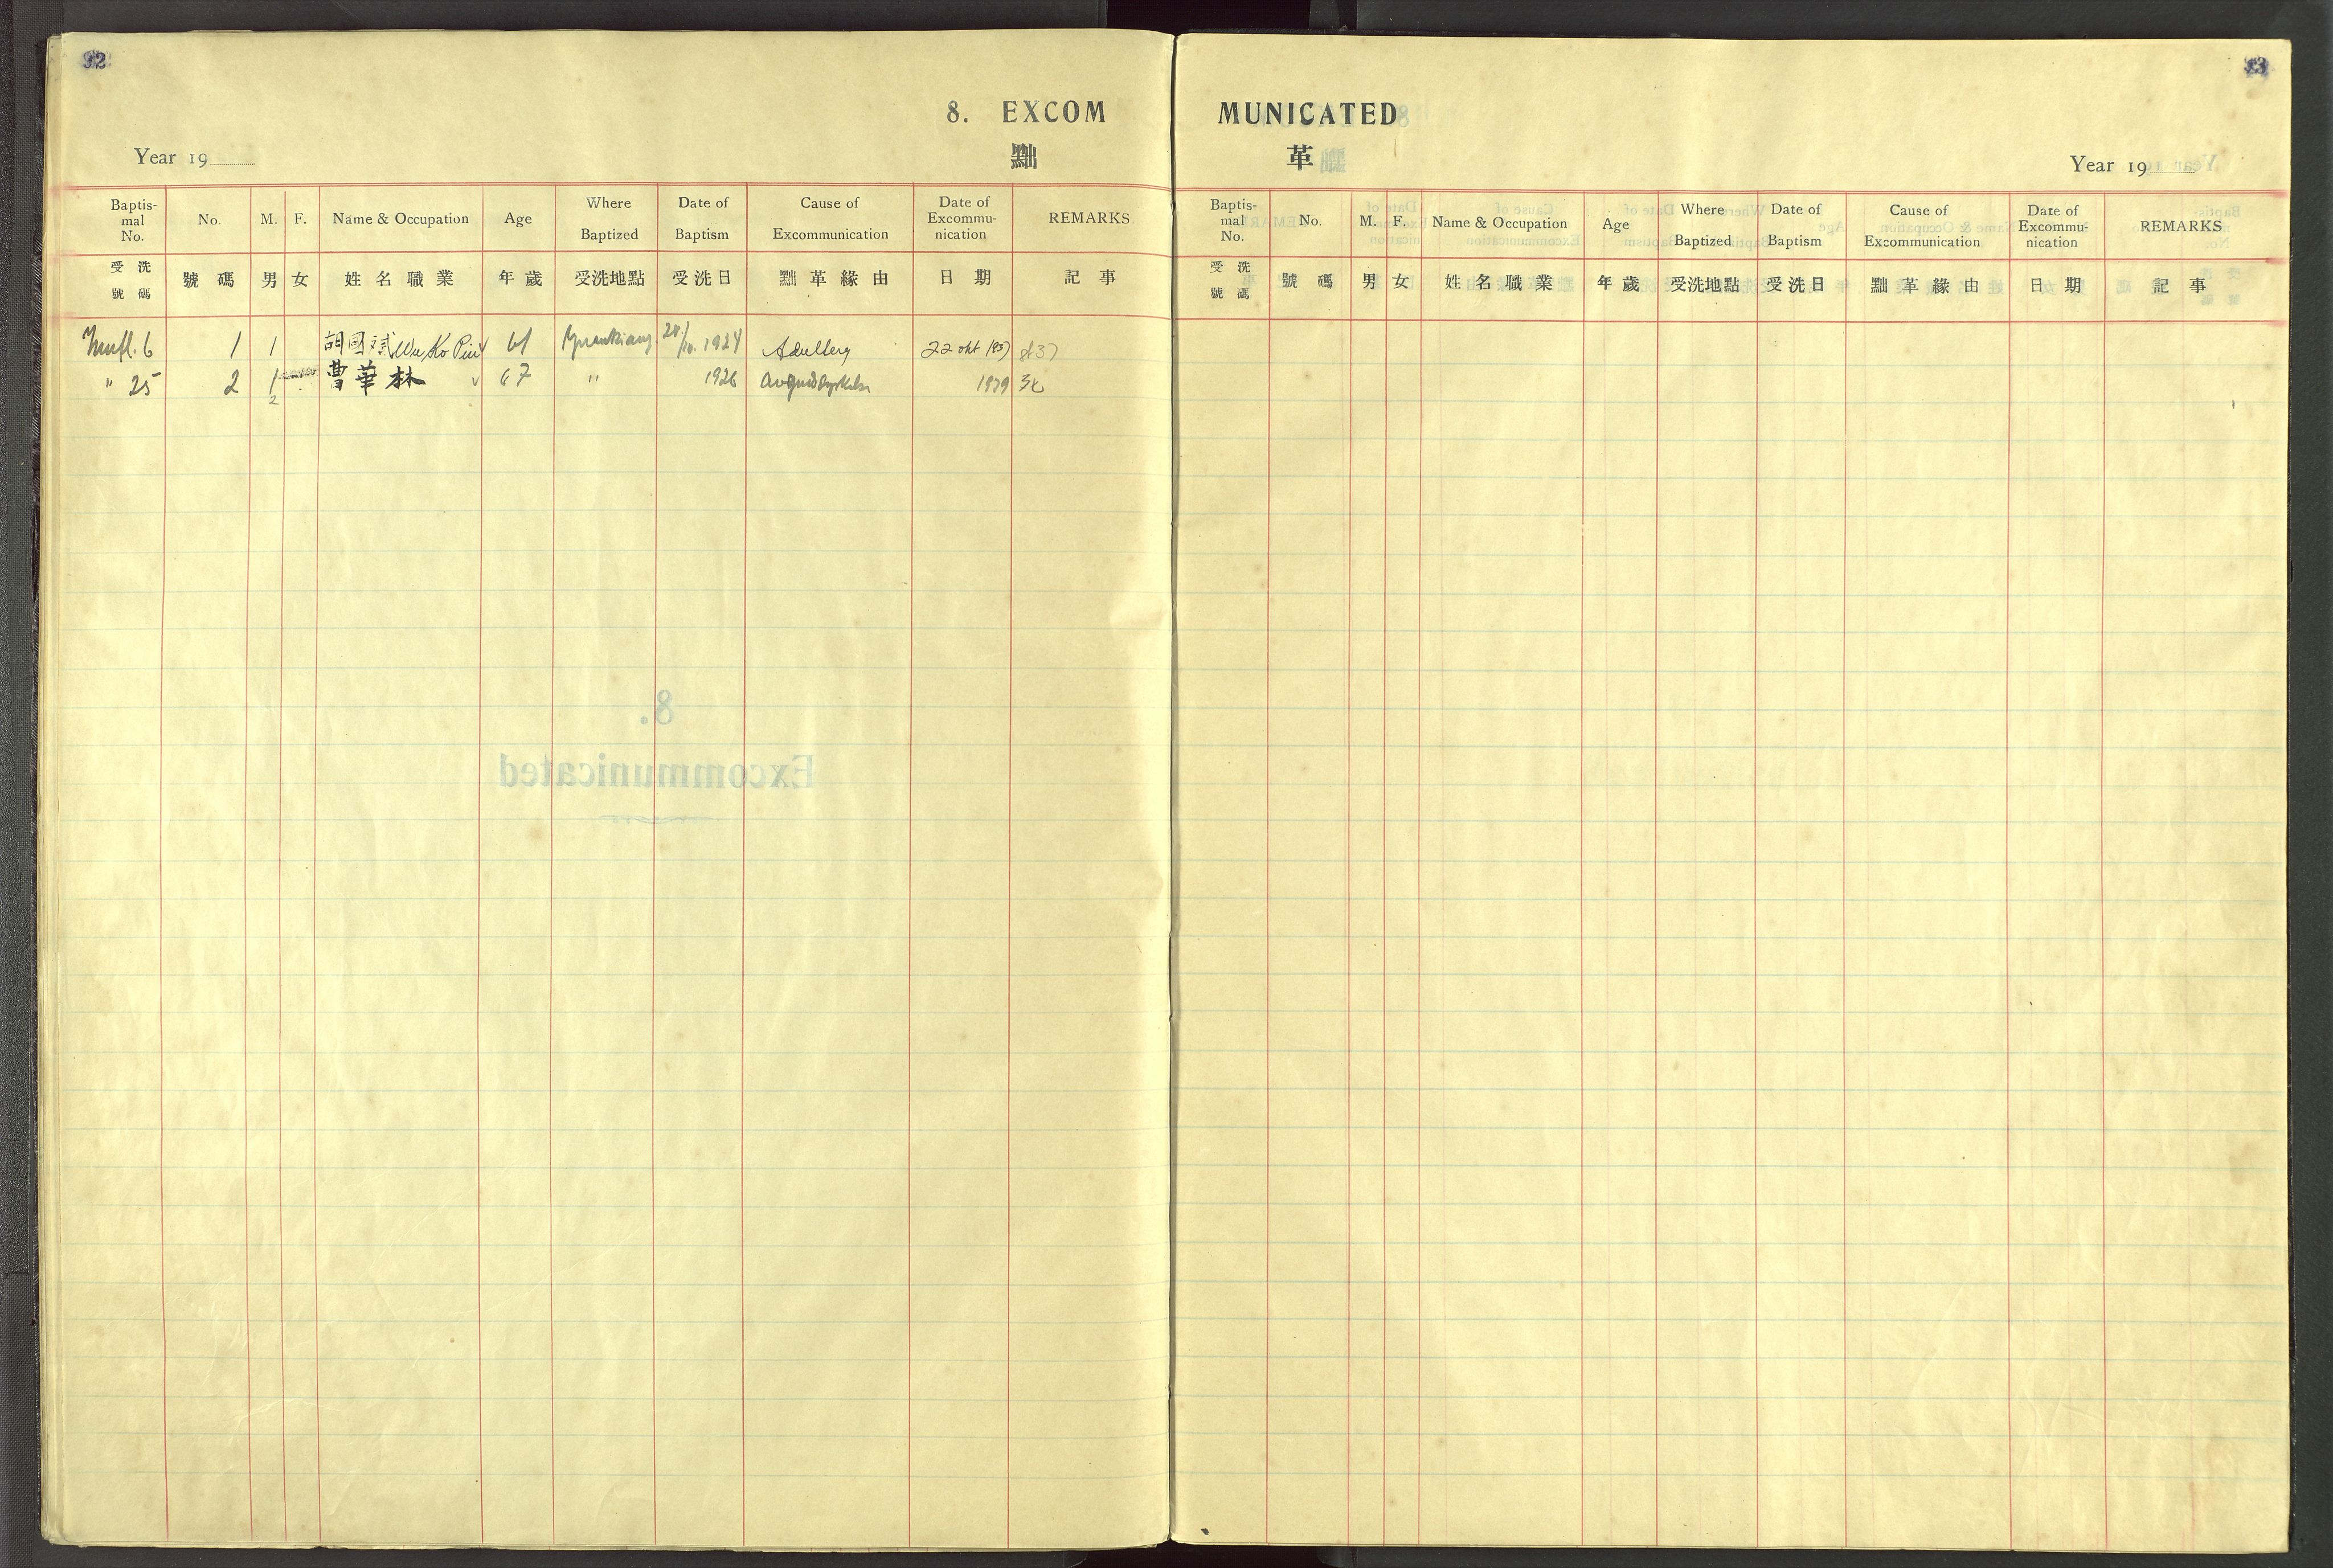 92
8. EXCOM
Year 19
黜
Baptis-mal No. No. M. F. Name & Occupation Age Where Baptized Date of Baptism Cause of Excommunication Date of Excommu-nication REMARKS
受洗號碼 號碼 男 女 姓名職業 年歲 受洗地點 受洗日 黜革緣由 日期 記事
6 1 1 胡國斌 Wu Ko Pin 61 1924 22 okt
" 25 2 1 曹華林 67 " 1926 1939
2
93
MUNICATED
革
Year 19
Baptis-mal No. No. M. F. Name & Occupation Age Where Baptized Date of Baptism Cause of Excommunication Date of Excommu-nication REMARKS
受洗號碼 號碼 男 女 姓名職業 年歲 受洗地點 受洗日 黜革緣由 日期 記事
8.
Excommunicated